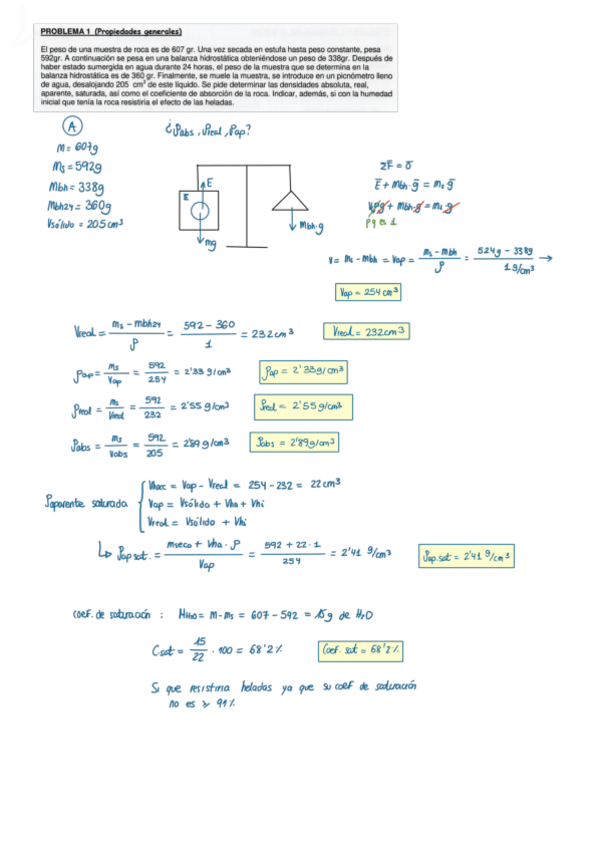 PROBLEMA 1 (Propiedades generales)
El peso de una muestra de roca es de 607 gr. Una vez secada en estufa hasta peso constante, pesa
592gr. A continuación se pesa en una balanza hidrostática obteniéndose un peso de 338gr. Después de
haber estado sumergida en agua durante 24 horas, el peso de la muestra que se determina en la
balanza hidrostática es de 360 gr. Finalmente, se muele la muestra, se introduce en un picnómetro lleno
de agua, desalojando 205 cm³ de este líquido. Se pide determinar las densidades absoluta, real,
aparente, saturada, así como el coeficiente de absorción de la roca. Indicar, además, si con la humedad
inicial que tenía la roca resistiría el efecto de las heladas.
A
¿ρabs, ρreal, ρap?
M = 607g
Ms = 592g
Mbh = 338g
Mbh24 = 360g
Vsólido = 205cm³
E
E
mg
Mbh·g
ΣF = 0
E + mbh·g = ms·g
Vρg + mbh·g = ms·g
ρq es 1
V = ms - mbh = Vap = (ms - mbh)/ρ = (524g - 338g)/(1g/cm³) →
Vap = 254cm³
Vreal = (ms - mbh24)/ρ = (592 - 360)/1 = 232cm³
Vreal = 232cm³
ρap = ms/Vap = 592/254 = 2'33g/cm³
ρap = 2'33g/cm³
ρreal = ms/Vreal = 592/232 = 2'55g/cm³
ρreal = 2'55g/cm³
ρabs = ms/Vabs = 592/205 = 2'89g/cm³
ρabs = 2'89g/cm³
ρaparente saturada
Vhacc = Vap - Vreal = 254 - 232 = 22cm³
Vap = Vsólido + Vha + Vhi
Vreal = Vsólido + Vhi
↳ ρap sat. = (mseco + Vha·ρ)/Vap = (592 + 22·1)/254 = 2'41 g/cm³
ρap.sat = 2'41 g/cm³
coef. de saturación : MH2O = M - ms = 607 - 592 = 15g de H₂O
Csat = 15/22 · 100 = 68'2%
Coef. sat = 68'2%
Si que resistiria heladas ya que su coef de saturación
no es ≥ 91%